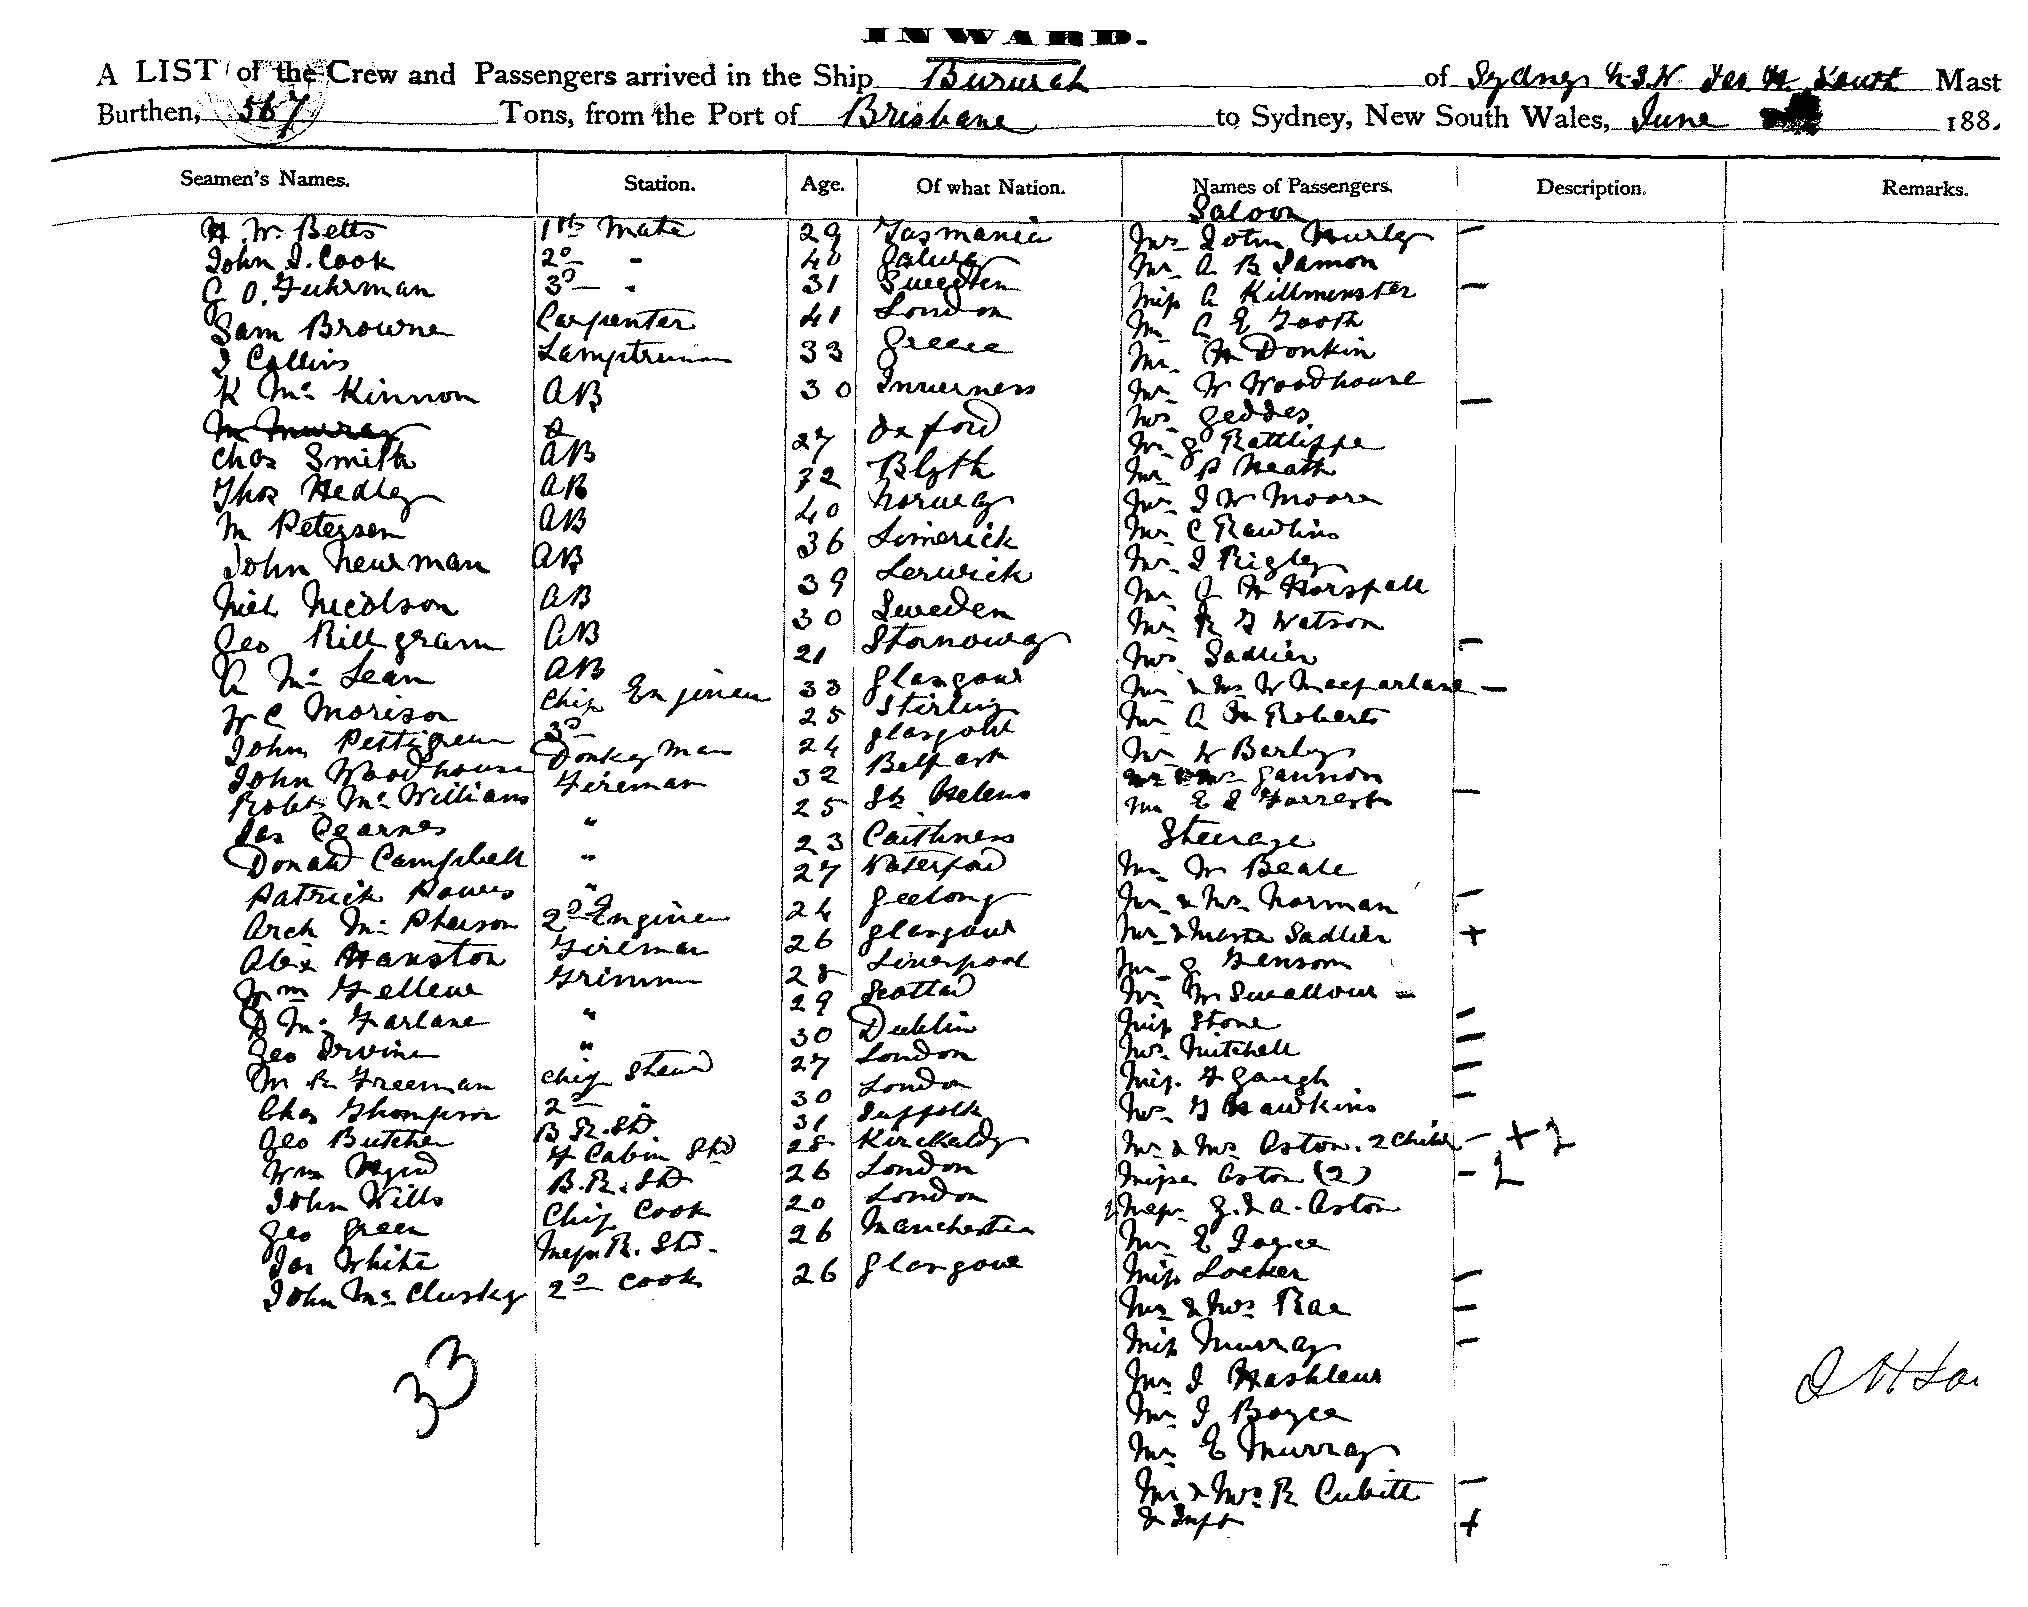 INWARD.
A LIST of the Crew and Passengers arrived in the Ship Burwah of Sydney N.S.W Jas H South Mast
Burthen, 567 Tons, from the Port of Brisbane to Sydney, New South Wales, June 188
Seamen's Names. Station. Age. Of what Nation. Names of Passengers. Description. Remarks.
Saloon
H. W. Betts 1st Mate 29 Tasmania Mrs John Hurley —
John J. Cook 2d " 40 Mr A B Damon
C O. Fuhrman 3d " 31 Sweden Miss A Killminster —
Sam Browne Carpenter 41 London Mr A E Tooth
J Collins Lamptrimmer 33 Greece Mr H Donkin
K Mc Kinnon AB 30 Inverness Mr W Woodhouse
M Murray Mrs Geddes —
Chas Smith AB 27 Oxford Mr G Rattlippe
Thos Hedley AB 32 Blyth Mr P Heath
M Petersen AB 40 Norway Mr J W Moore
John Newman AB 36 Limerick Mr C Rawlins
Niel Nicolson AB 39 Lerwick Mr J Rigley
Geo Killgram AB 30 Sweden Mr J H Horsfall
A Mc Lean AB 21 Stornoway Mr R G Watson
W C Morison Chip Engineer 33 Glasgow Mrs Sadlier —
John Pettigrew 3d 25 Stirling Mr & Mrs W Macfarlane —
John Woodhouse Donkeyman 24 Glasgow Mr A M Roberts
Robt Mc Williams Fireman 32 Belfast Mr W Barlys
Jas Cearnes " 25 St Helens Gannon
Donald Campbell " 23 Caithness Mr E J Forrest —
Patrick Powers " 27 Waterford Steerage
Arch Mc Pherson 2d Engineer 24 Geelong Mr W Beale
Alex Hanston Fireman 26 Glasgow Mr & Mrs Norman —
Wm Gellew Trimmer 28 Liverpool Mr & Master Sadlier +
D Mc Farlane " 29 Scotland Mr G Henson
Geo Irvine " 30 Dublin Mr W Swallow —
M R Freeman Chip Stewd 27 London Miss Stone —
Chas Thompson 2d " 30 London Mrs Mitchell —
Geo Butcher B R. Std 31 Suffolk Miss F Gaugh —
Wm F Cabin Std 28 Kirckaldy Mrs G Hawkins —
John Wills B. R. Std 26 London Mr & Mrs Aston. 2 Child — + 2
Geo Green Chip Cook 20 London Misses Aston (2) — 2
Jas White Mess R. Std. 26 Manchester 2 Messrs G. & A. Aston
John Mc Clusky 2d Cook 26 Glasgow Mr E Joyce
Miss Locker —
Mr & Mrs Rae —
Miss Murray —
Mr J Hashleur
Mr J Boyce
Mr E Murray
Mr & Mrs R Cubitt —
& Inft +
33
J H Sou